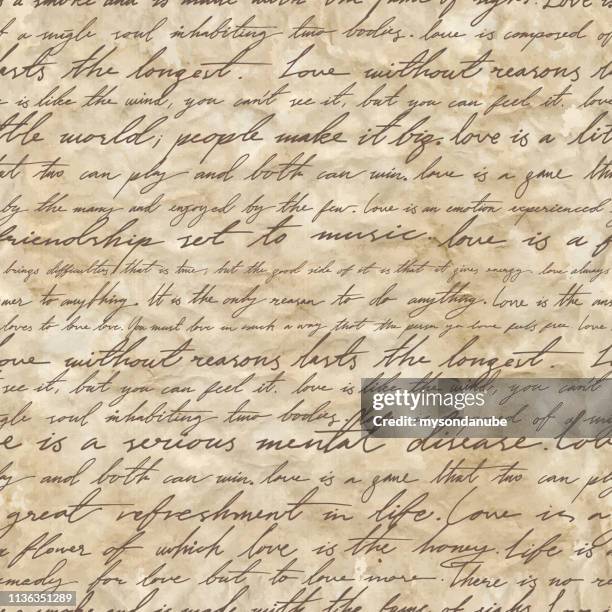 a smoke and is made with the fume of sighs. Love i
f a single soul inhabiting two bodies. love is composed of
lasts the longest. Love without reasons l
e is like the wind, you can't see it, but you can feel it. lov
ttle world; people make it big. love is a lit
at two can play and both can win. love is a game tha
by the many and enjoyed by the few. Love is an emotion experienced
friendship set to music. love is a f
brings difficulties, that is true, but the good side of it is that it gives energy. love always
wer to anything. It is the only reason to do anything. Love is the ans
loves to love love. You must love in such a way that the person you love feels free. Love
ove without reasons lasts the longest. L
see it, but you can feel it. love is like the wind, you can't
ngle soul inhabiting two bodies. love is composed of a si
e is a serious mental disease. Love
y and both can win. love is a game that two can play
great refreshment in life. Love is a
a flower of which love is the honey. life is
emedy for love but to love more. There is no re
a smoke and is made with the fume of sighs. Love
iStock
Credit: mysondanube
1136351289